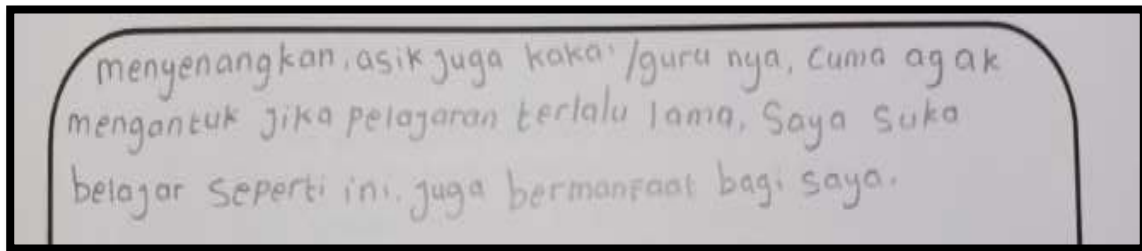 menyenangkan, asik juga kaka' /guru nya, cuma agak
mengantuk jika pelajaran terlalu lama, Saya suka
belajar seperti ini. juga bermanfaat bagi saya.